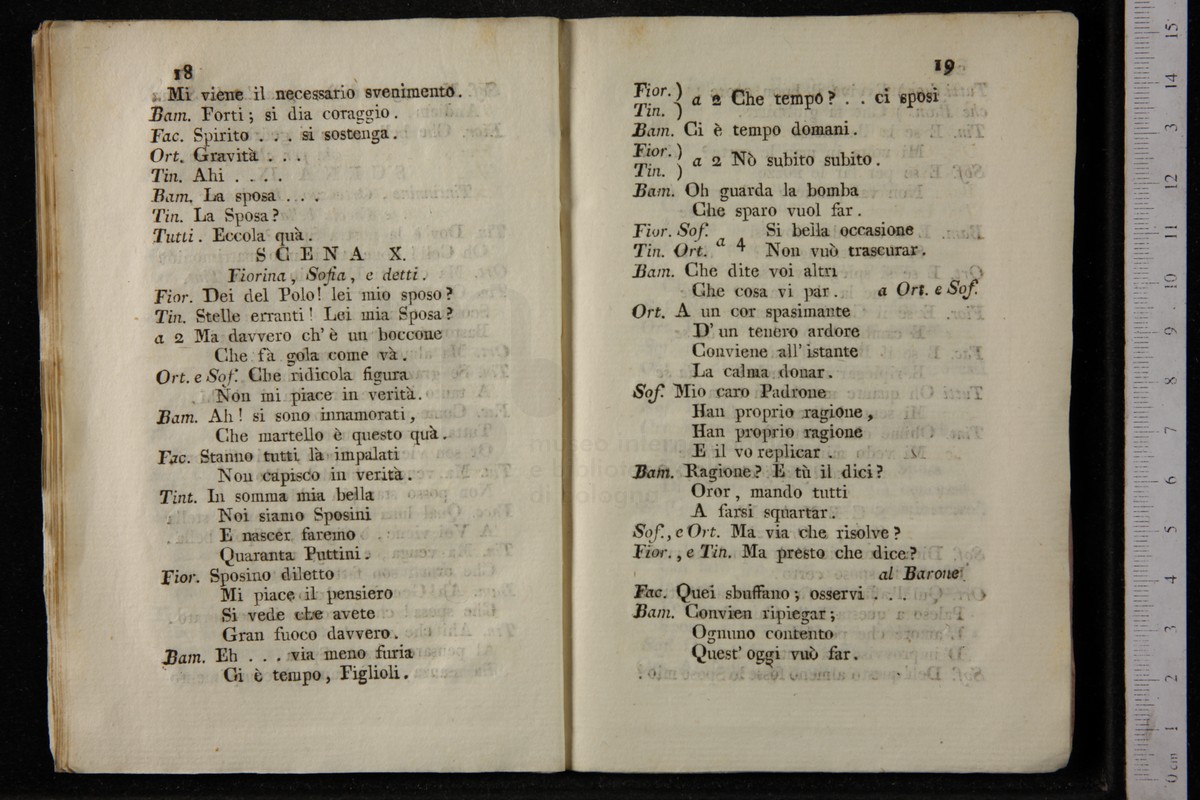 18
Mi viene il necessario svenimento.
Bam. Forti; si dia coraggio.
Fac. Spirito . . . si sostenga.
Ort. Gravità . . .
Tin. Ahi . . . .
Bam. La sposa . . .
Tin. La Sposa?
Tutti. Eccola quà.
SCENA X.
Fiorina, Sofia, e detti.
Fior. Dei del Polo! lei mio sposo?
Tin. Stelle erranti! Lei mia Sposa?
a 2 Ma davvero ch' è un boccone
Che fà gola come và.
Ort. e Sof. Che ridicola figura
Non mi piace in verità.
Bam. Ah! si sono innamorati,
Che martello è questo quà.
Fac. Stanno tutti là impalati
Non capisco in verità.
Tint. In somma mia bella
Noi siamo Sposini
E nascer faremo
Quaranta Puttini.
Fior. Sposino diletto
Mi piace il pensiero
Si vede che avete
Gran fuoco davvero.
Bam. Eh . . . via meno furia
Ci è tempo, Figlioli.
19
Fior. )
Tin. ) a 2 Che tempo? . . ci sposi
Bam. Ci è tempo domani.
Fior. )
Tin. ) a 2 Nò subito subito.
Bam. Oh guarda la bomba
Che sparo vuol far.
Fior. Sof. Si bella occasione
Tin. Ort. a 4 Non vuò trascurar.
Bam. Che dite voi altri
Che cosa vi par. a Ort. e Sof.
Ort. A un cor spasimante
D' un tenero ardore
Conviene all' istante
La calma donar.
Sof. Mio caro Padrone
Han proprio ragione,
Han proprio ragione
E il vo replicar.
Bam. Ragione? E tù il dici?
Oror, mando tutti
A farsi squartar.
Sof., e Ort. Ma via che risolve?
Fior., e Tin. Ma presto che dice?
al Barone.
Fac. Quei sbuffano; osservi . . .
Bam. Convien ripiegar;
Ognuno contento
Quest' oggi vuò far.